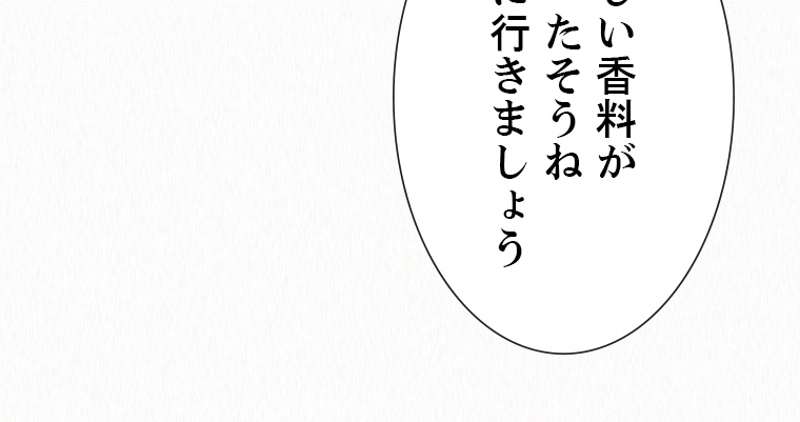 しい香料が
たそうね
に行きましょう